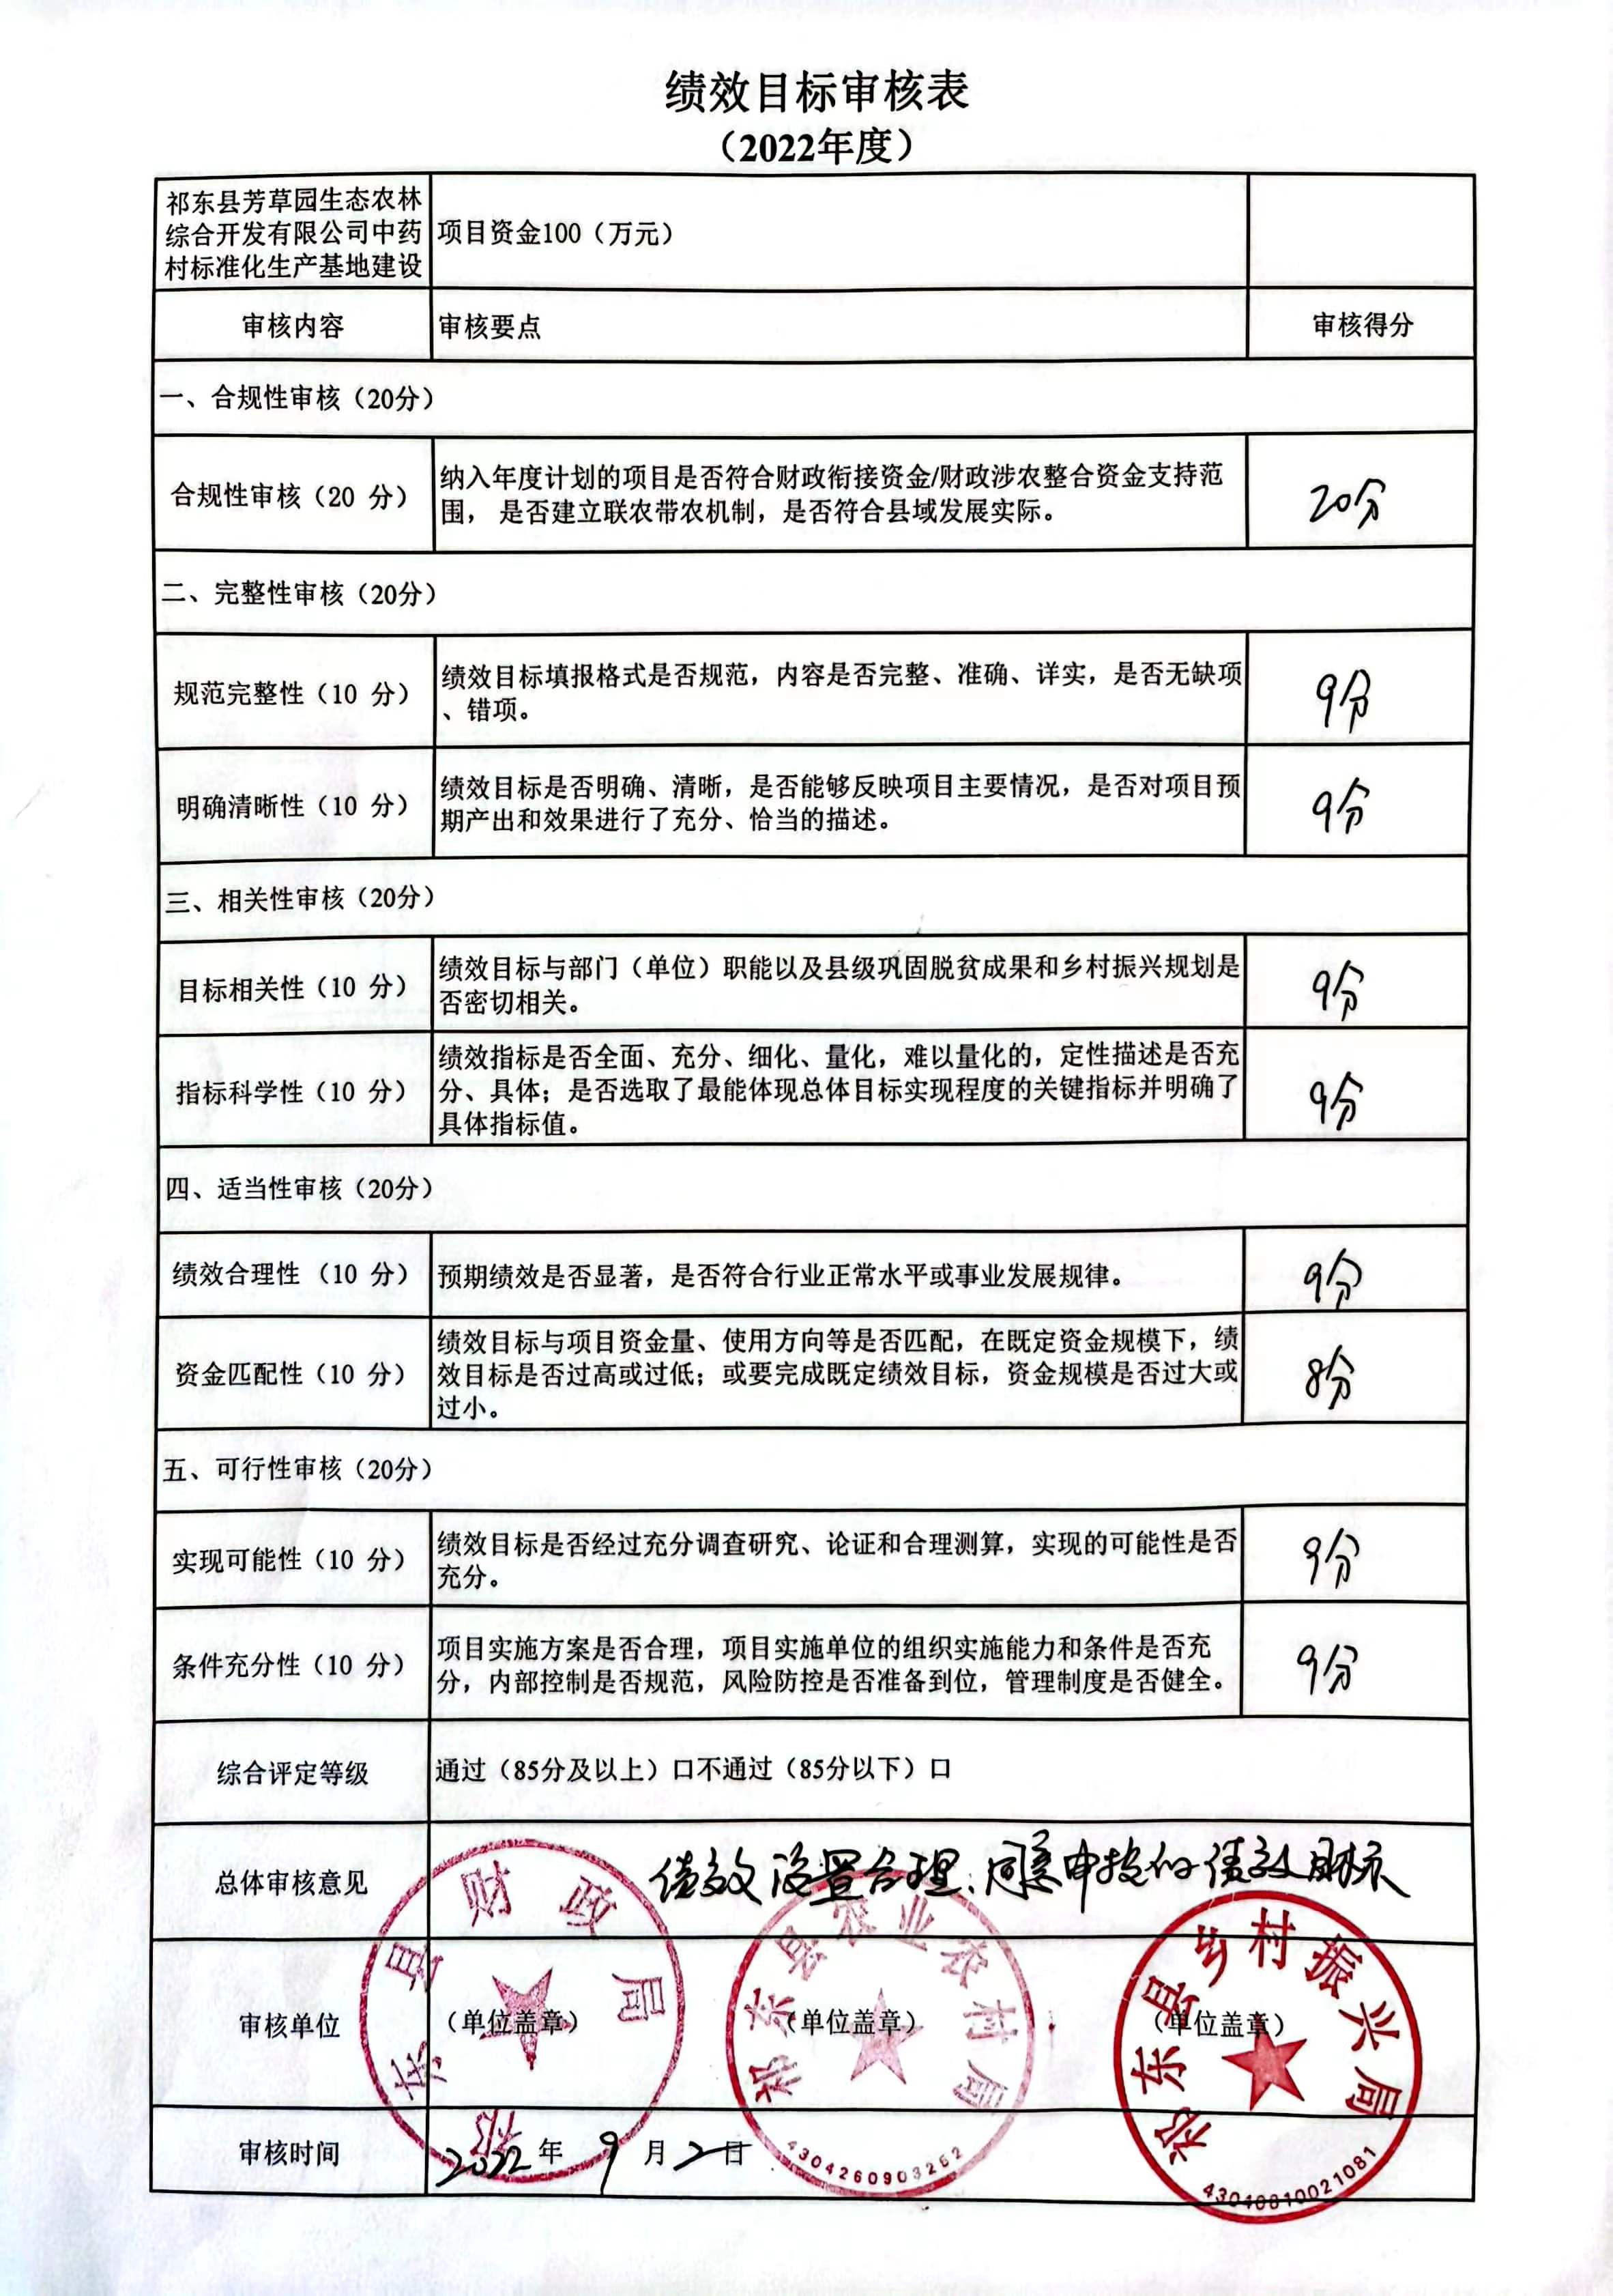 绩效目标审核表
（2022年度）
祁东县芳草园生态农林
综合开发有限公司中药
村标准化生产基地建设
项目资金100（万元）
审核内容
审核要点
审核得分
一、合规性审核（20分）
合规性审核（20 分）
纳入年度计划的项目是否符合财政衔接资金/财政涉农整合资金支持范
围， 是否建立联农带农机制，是否符合县域发展实际。
20分
二、完整性审核（20分）
规范完整性（10 分）
绩效目标填报格式是否规范，内容是否完整、准确、详实，是否无缺项
、错项。
9分
明确清晰性（10 分）
绩效目标是否明确、清晰，是否能够反映项目主要情况，是否对项目预
期产出和效果进行了充分、恰当的描述。
9分
三、相关性审核（20分）
目标相关性（10 分）
绩效目标与部门（单位）职能以及县级巩固脱贫成果和乡村振兴规划是
否密切相关。
9分
指标科学性（10 分）
绩效指标是否全面、充分、细化、量化，难以量化的，定性描述是否充
分、具体；是否选取了最能体现总体目标实现程度的关键指标并明确了
具体指标值。
9分
四、适当性审核（20分）
绩效合理性 （10 分）
预期绩效是否显著，是否符合行业正常水平或事业发展规律。
9分
资金匹配性（10 分）
绩效目标与项目资金量、使用方向等是否匹配，在既定资金规模下，绩
效目标是否过高或过低；或要完成既定绩效目标，资金规模是否过大或
过小。
8分
五、可行性审核（20分）
实现可能性（10 分）
绩效目标是否经过充分调查研究、论证和合理测算，实现的可能性是否
充分。
9分
条件充分性（10 分）
项目实施方案是否合理，项目实施单位的组织实施能力和条件是否充
分，内部控制是否规范，风险防控是否准备到位，管理制度是否健全。
9分
综合评定等级
通过（85分及以上）口不通过（85分以下）口
总体审核意见
绩效设置合理，同意申报的绩效目标
审核单位
（单位盖章）
（单位盖章）
（单位盖章）
祁东县财政局
祁东县农业农村局
4304260903262
祁东县乡村振兴局
43040810021081
审核时间
2022年9月2日